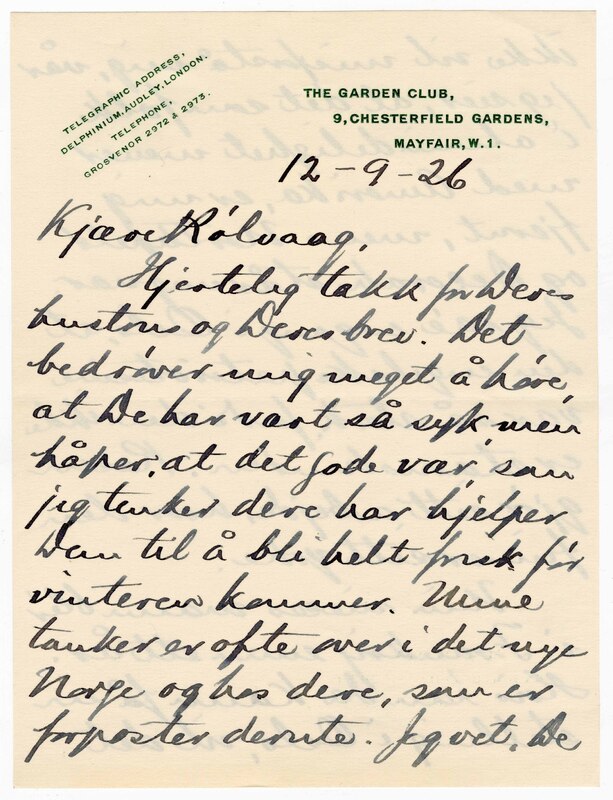 TELEGRAPHIC ADDRESS,
DELPHINIUM, AUDLEY, LONDON.
TELEPHONE,
GROSVENOR 2972 & 2973.
THE GARDEN CLUB,
9, CHESTERFIELD GARDENS,
MAYFAIR, W.1.
12-9-26
Kjære Rölvaag,
Hjertelig takk for Deres
hustrus og Deres brev. Det
bedröver mig meget å höre,
at De har vært så syk, men
håper, at det gode vær, som
jeg tenker dere har hjelper
Dem til å bli helt frisk för
vinteren kommer. Mine
tanker er ofte over i det nye
Norge og hos dere, som er
forposter derute. Jeg vet, De